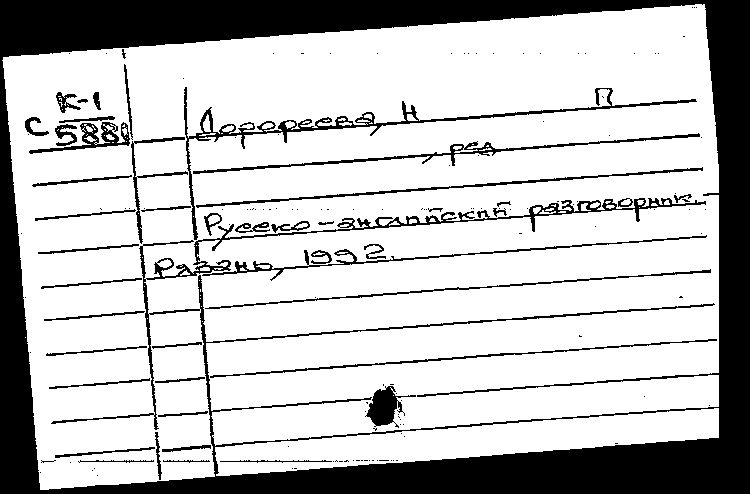 К-1
С 5881
Дорофеева, Н П
, ред
Русско-английский разговорник.-
Рязань, 1992.